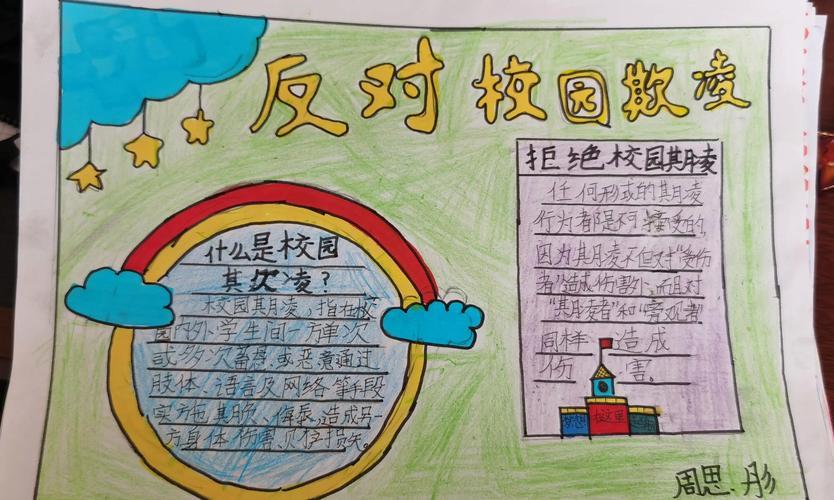 反对校园欺凌
什么是校园
其次凌？
校园其月凌，指在校
园内外学生间一方单次
或多次蓄意或恶意通过
肢体、语言及网络等手段
实施其欺、侮辱，造成另一
方身体伤害、财产损失。
拒绝校园其月凌
任何形式的其月凌
行为者都是不可接受的，
因为其月凌不但对“受伤
者”造成伤害，而且对
“其月凌者”和“旁观者”
同样造成
伤害。
梦想 在这里
周思彤